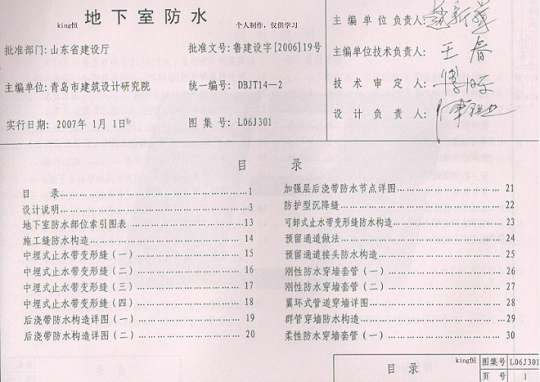 king恒 地下室防水 个人制作，仅供学习
批准部门: 山东省建设厅 批准文号: 鲁建设字[2006]19号
主编单位: 青岛市建筑设计研究院 统一编号: DBJT14—2
实行日期: 2007年 1月 1日 图集号: L06J301
主编单位负责人:
主编单位技术负责人: 王春
技术审定人:
设计负责人:
目 录
目 录…………1
设计说明…………3
地下室防水部位索引图表…………13
施工缝防水构造…………14
中埋式止水带变形缝（一）…………15
中埋式止水带变形缝（二）…………16
中埋式止水带变形缝（三）…………17
中埋式止水带变形缝（四）…………18
后浇带防水构造详图（一）…………19
后浇带防水构造详图（二）…………20
加强层后浇带防水节点详图…………21
防护型沉降缝…………22
可卸式止水带变形缝防水构造…………23
预留通道做法…………24
预留通道接头防水构造…………25
刚性防水穿墙套管（一）…………26
刚性防水穿墙套管（二）…………27
翼环式管道穿墙详图…………28
群管穿墙防水构造…………29
柔性防水穿墙套管（一）…………30
目 录 king恒 图集号 L06J301
页 号 1